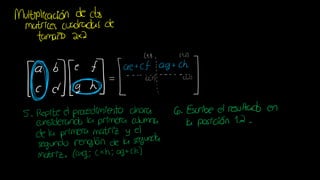 Multiplicación de dos
matrices cuadradas de
tamaño 2x2
(1,1) (1,2)
[a b] [e f] = [ae+cf ag+ch]
[c d] [g h]
5. Repite el procedimiento ahora
considerando la primera columna
de la primera matriz y el
segundo renglón de la segunda
matriz. (a×g; c×h; ag+ch)
6. Escribe el resultado en
la posición 1,2.